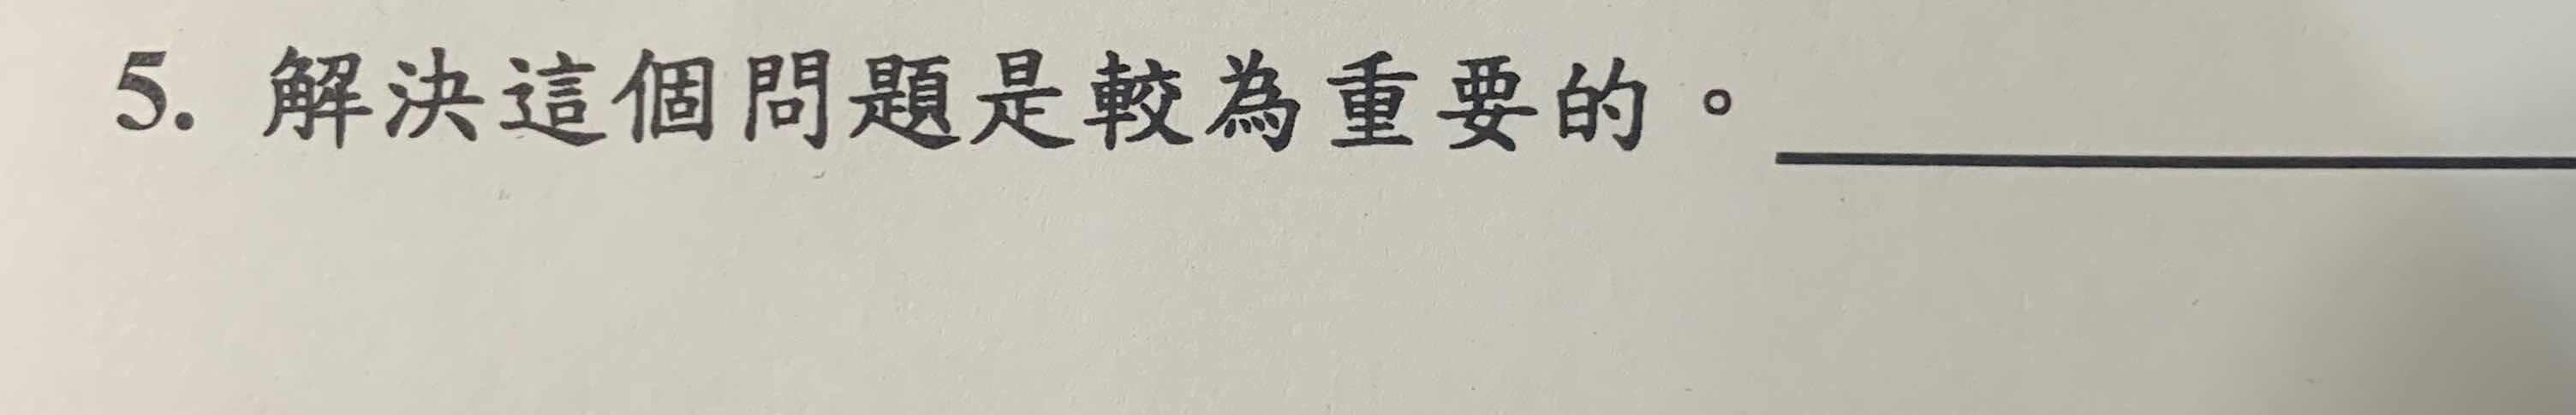 5. 解決這個問題是較為重要的。